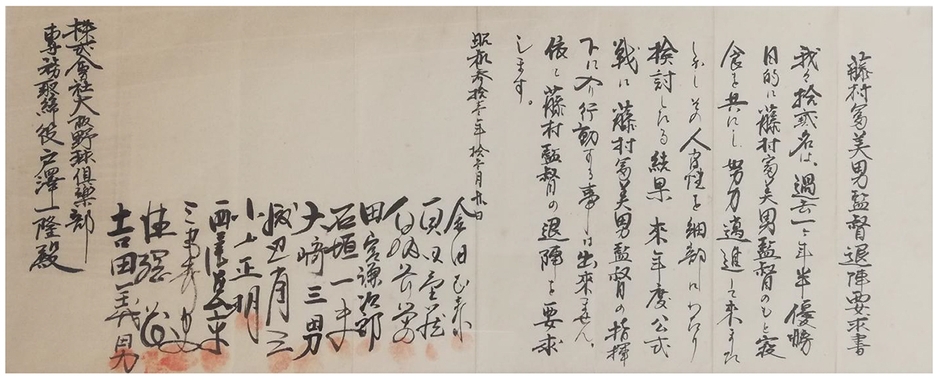 藤村富美男監督退陣要求書
我々拾弐名は、過去一ヶ年半優勝
目的に藤村富美男監督のもと寝
食を共にし努力邁進して来ました
しかしその人間性を細部にわたり
検討したる結果来年度公式
戦に藤村富美男監督の指揮
下に入り行動する事は出来ません。
依て藤村監督の退陣を要求
します。
昭和参拾壱年拾壱月
金田正泰
真田重蔵
石垣一夫
田宮謙次郎
大崎三男
小山正明
吉田義男
株式会社大阪野球倶楽部
専務取締役戸澤一隆殿